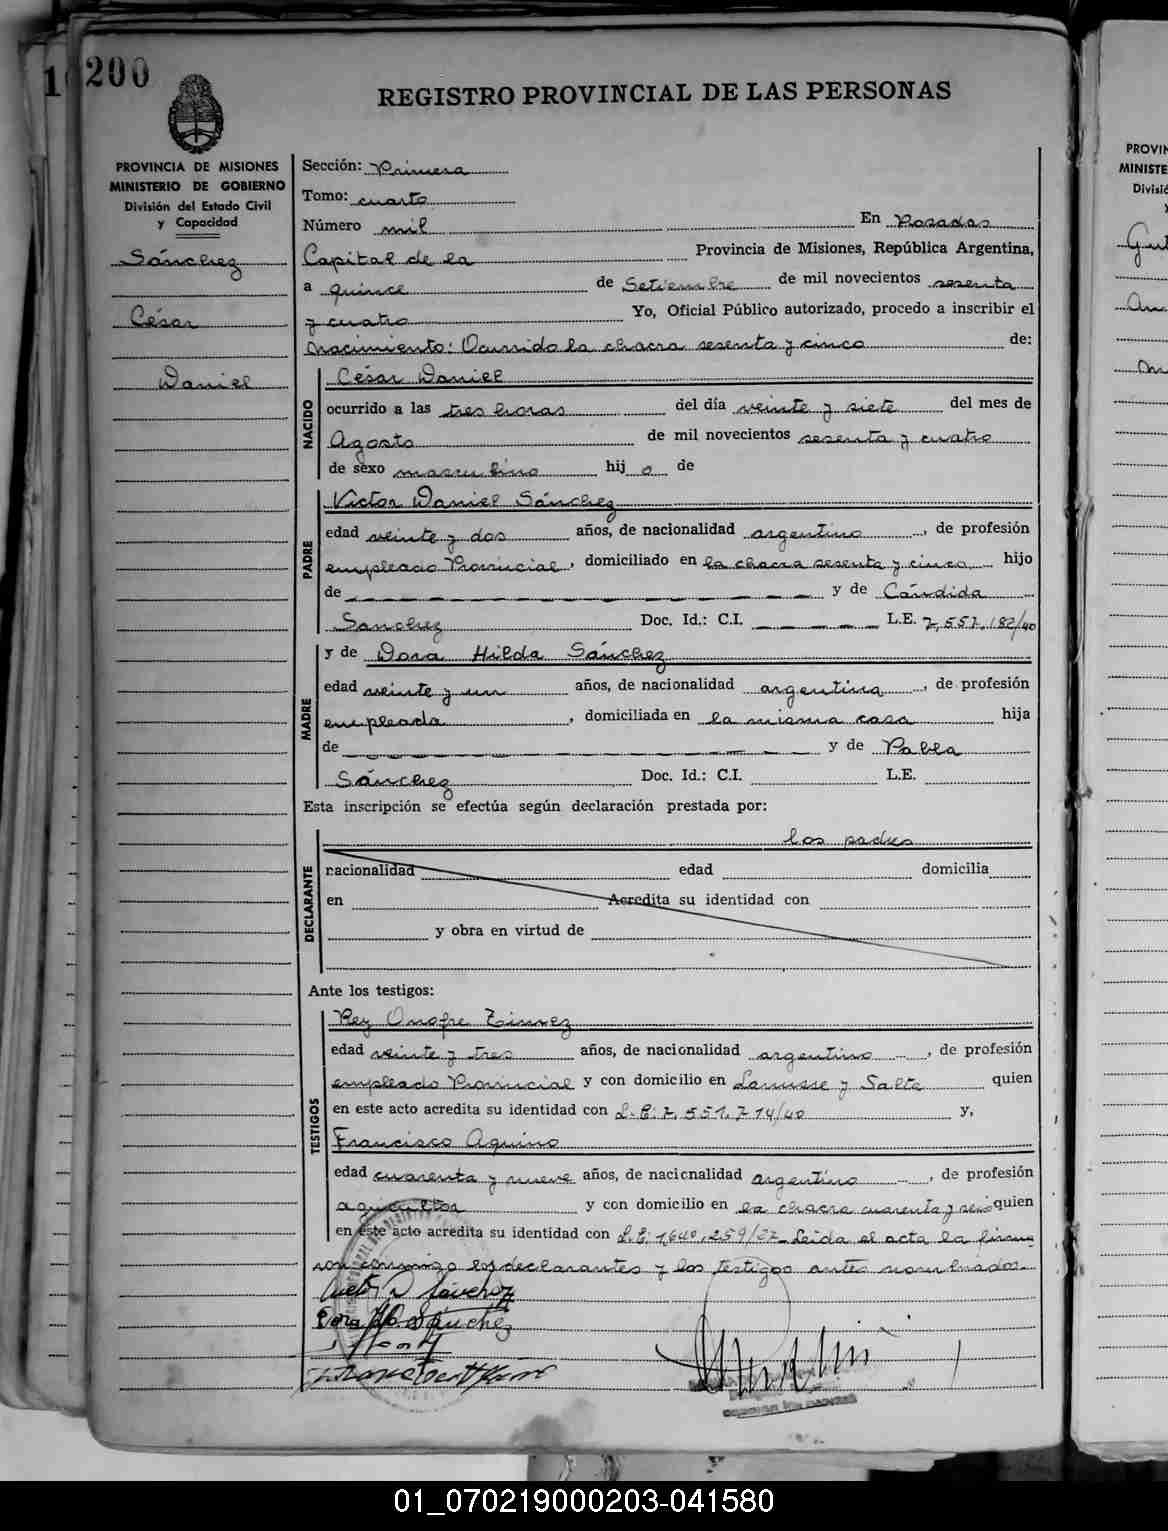 200
REGISTRO PROVINCIAL DE LAS PERSONAS
PROVINCIA DE MISIONES
MINISTERIO DE GOBIERNO
División del Estado Civil
y Capacidad
Sánchez
César
Daniel
Sección: Primera
Tomo: cuarto
Número mil En Posadas
Capital de la Provincia de Misiones, República Argentina,
a quince de Setiembre de mil novecientos sesenta
y cuatro Yo, Oficial Público autorizado, procedo a inscribir el
Nacimiento: Ocurrido la chacra sesenta y cinco de:
NACIDO
César Daniel
ocurrido a las tres horas del día veinte y siete del mes de
Agosto de mil novecientos sesenta y cuatro
de sexo masculino hijo de
PADRE
Víctor Daniel Sánchez
edad veinte y dos años, de nacionalidad argentino, de profesión
empleado Provincial, domiciliado en la chacra sesenta y cinco, hijo
de y de Cándida
Sanchez Doc. Id.: C.I. L.E. 7,557,182/40
MADRE
y de Dora Hilda Sánchez
edad veinte y un años, de nacionalidad argentina, de profesión
empleada, domiciliada en la misma casa hija
de y de Pabla
Sánchez Doc. Id.: C.I. L.E.
Esta inscripción se efectúa según declaración prestada por:
DECLARANTE
los padres
nacionalidad edad domicilia
en Acredita su identidad con
y obra en virtud de
Ante los testigos:
TESTIGOS
Rey Onofre
edad veinte y tres años, de nacionalidad argentino, de profesión
empleado Provincial y con domicilio en Lanusse y Salta quien
en este acto acredita su identidad con L.E: 7,551,714/40 y,
Francisco Aquino
edad cuarenta y nueve años, de nacionalidad argentino, de profesión
agricultor y con domicilio en la chacra cuarenta y seis quien
en este acto acredita su identidad con L.E: 1,640,259/37 Leida el acta la firma
ron conmigo los declarantes y los testigos antes nombrados.
Victor D Sánchez
Dora H. Sánchez
PROVIN
MINISTE
01_070219000203-041580